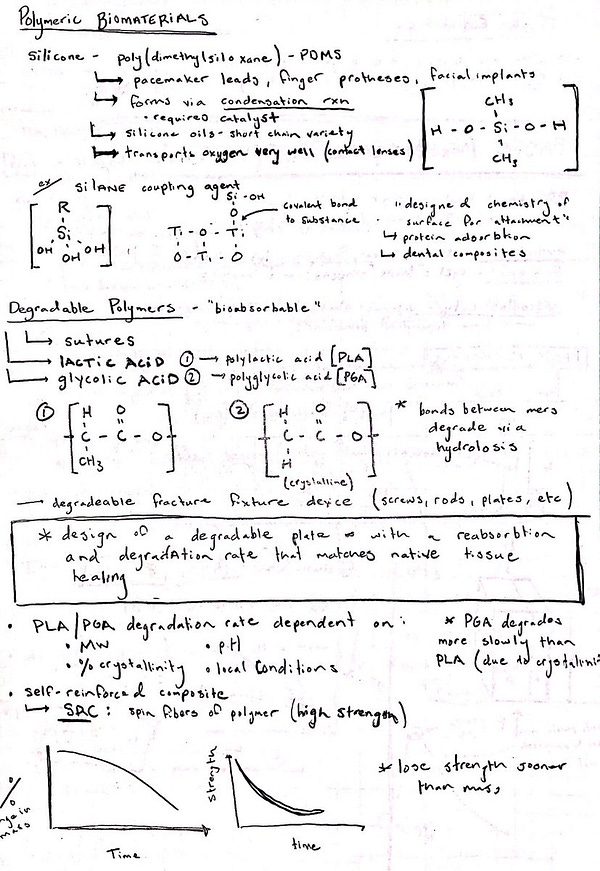 Polymeric BIOMATERIALS
Silicone - poly(dimethylsiloxane) - PDMS
↳ pacemaker leads, finger protheses, facial implants
↳ forms via condensation rxn
• required catalyst
↳ silicone oils - short chain variety
↳ transports oxygen very well (contact lenses)
CH3
H - O - Si - O - H
CH3
ex/ SILANE coupling agent
R
Si
OH OH OH
Si - OH
O
Ti - O - Ti
O - Ti - O
covalent bond
to substance
"designed chemistry of
surface for attachment"
↳ protein adsorbtion
↳ dental composites
Degradable Polymers - "bioabsorbable"
↳ sutures
↳ LACTIC ACID ① → polylactic acid [PLA]
↳ glycolic ACID ② → polyglycolic acid [PGA]
①
H O
- C - C - O -
CH3
②
H O
- C - C - O -
H
(crystalline)
* bonds between mers
degrade via
hydrolosis
— degradeable fracture fixture device (screws, rods, plates, etc)
* design of a degradable plate with a reabsorbtion
and degradation rate that matches native tissue
healing
• PLA/PGA degradation rate dependent on:
• MW • pH
• % crystallinity • local conditions
* PGA degrades
more slowly than
PLA (due to crystallini
• self-reinforced composite
↳ SRC: spin fibers of polymer (high strength)
%
mass
Time
Strength
time
* lose strength sooner
than mass